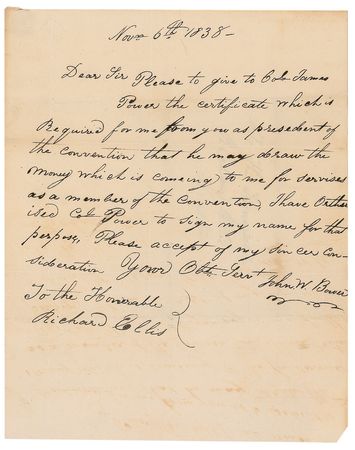 Novr 6th 1838-
Dear Sir Please to give to Colo James
Power the certificate which is
Required for me from you as presedent of
the convention that he may draw the
money which is comeing to me for services
as a member of the convention, I have Orthor
ised Colo Power to sign my name for that
perpose, Please accept of my sincer Con-
sideration Your Obt Servt
John W. Bower
To the Honerable
Richard Ellis